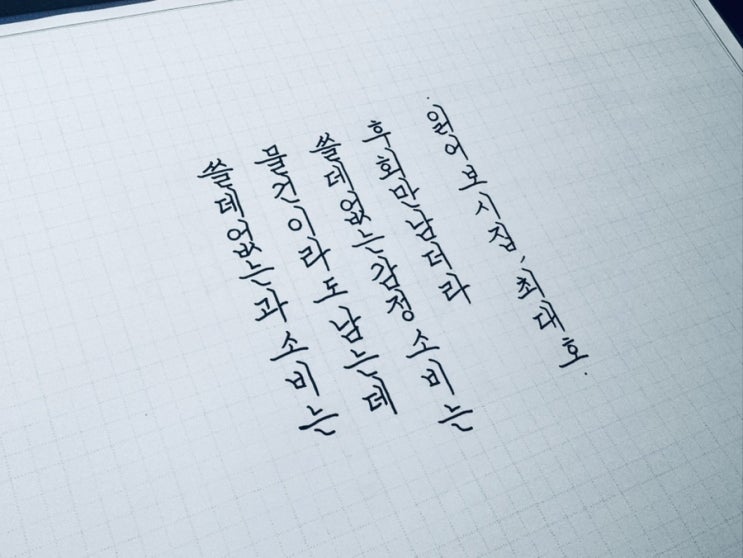 쓸데없는 과소비는
물건이라도 남는데
쓸데없는 감정소비는
후회만 남더라
읽어보시집, 최대호.